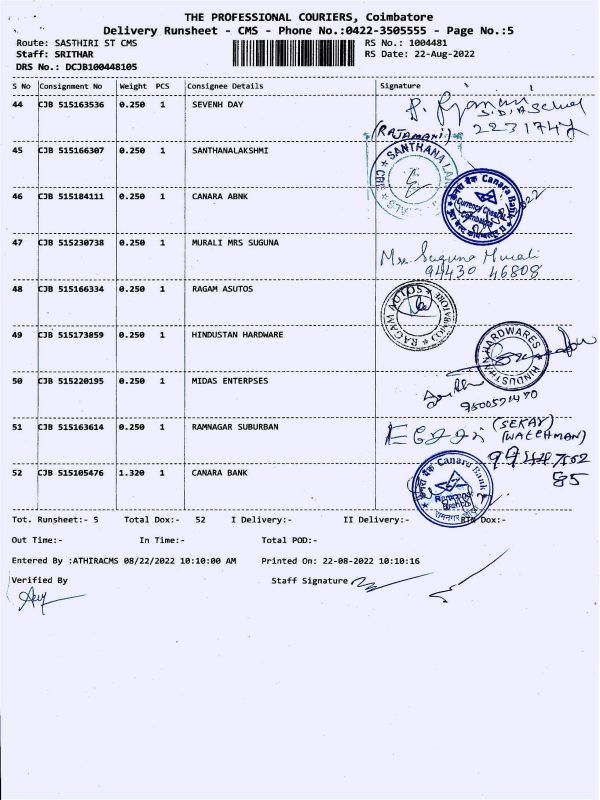 THE PROFESSIONAL COURIERS, Coimbatore
Delivery Runsheet - CMS - Phone No.:0422-3505555 - Page No.:5
Route: SASTHIRI ST CMS RS No.: 1004481
Staff: SRITHAR RS Date: 22-Aug-2022
DRS No.: DCJB100448105
S No Consignment No Weight PCS Consignee Details Signature
44 CJB 515163536 0.250 1 SEVENH DAY
(RAJAMANI)
45 CJB 515166307 0.250 1 SANTHANALAKSHMI
SANTHANA
46 CJB 515184111 0.250 1 CANARA ABNK
Canara Bank
Currency Chest
Coimbatore
47 CJB 515230738 0.250 1 MURALI MRS SUGUNA Mrs Suguna Murali
94430 46808
48 CJB 515166334 0.250 1 RAGAM ASUTOS
RAGAM AUTOS
49 CJB 515173859 0.250 1 HINDUSTAN HARDWARE
HINDUSTHAN HARDWARES
50 CJB 515220195 0.250 1 MIDAS ENTERPSES
51 CJB 515163614 0.250 1 RAMNAGAR SUBURBAN (SEKAR)
(WATCHMAN)
52 CJB 515105476 1.320 1 CANARA BANK
Canara Bank
85
Tot. Runsheet:- 5 Total Dox:- 52 I Delivery:- II Delivery:- RTN Dox:-
Out Time:- In Time:- Total POD:-
Entered By :ATHIRACMS 08/22/2022 10:10:00 AM Printed On: 22-08-2022 10:10:16
Verified By Staff Signature